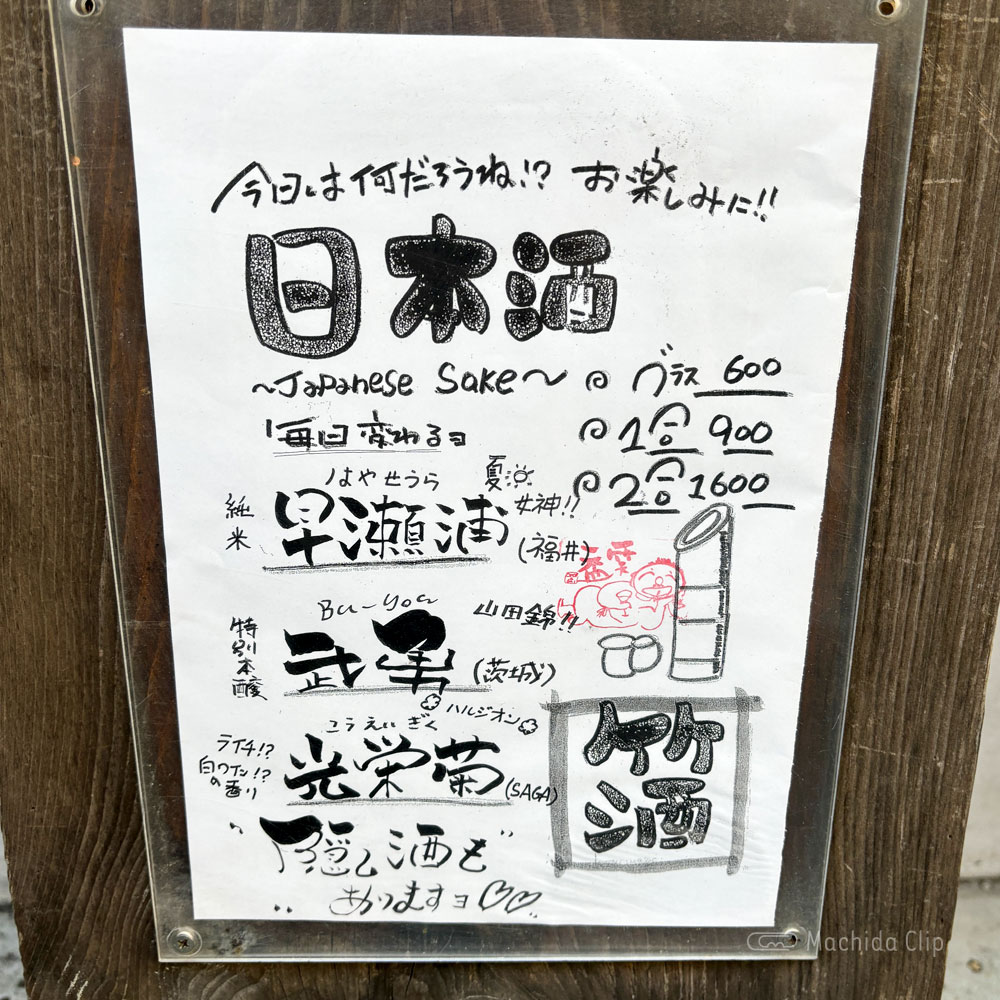 今日は何だろうね!? お楽しみに!!
日本酒
～Japanese Sake～
グラス 600
1合 900
2合 1600
毎日変わるヨ
はやせうら
純米
早瀬浦
夏
女神!!
(福井)
Bu-you
山田錦!!
特別本醸
武勇
(茨城)
ハルジオン
こうえいぎく
ライチ!?
白ワイン!?
の香り
光栄菊
(SAGA)
竹
酒
"隠し酒も"
ありますヨ♡♡
Machida Clip